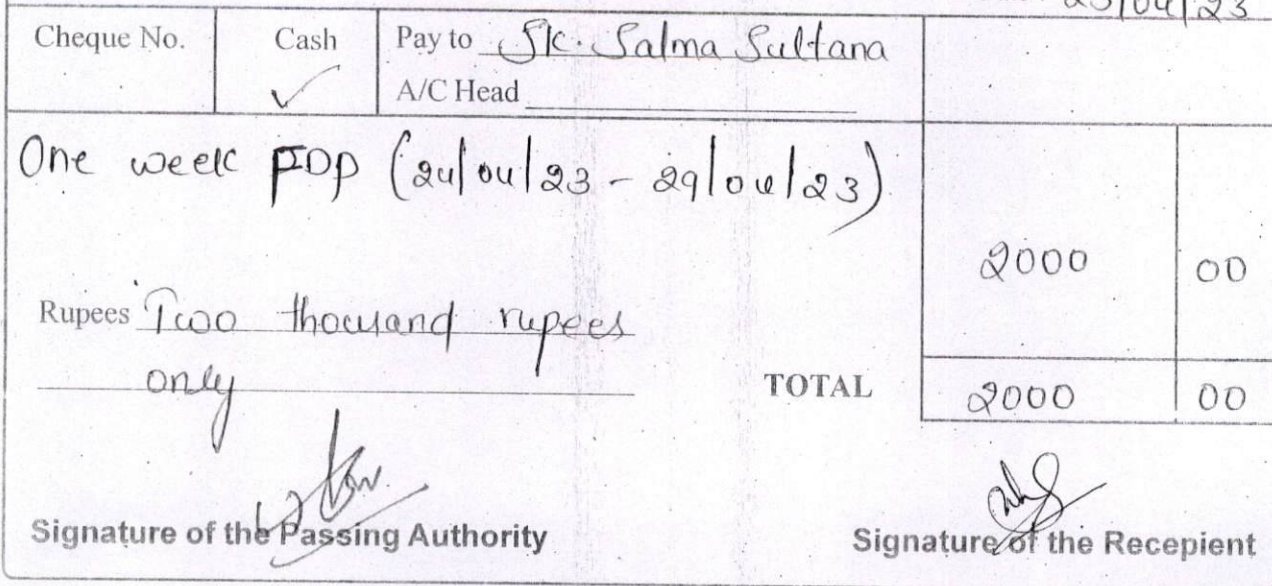 Cheque No. Cash Pay to SK. Salma Sultana
✓ A/C Head
One week FDP (24/04/23 - 29/04/23)
2000 00
Rupees Two thousand rupees
only TOTAL 2000 00
Signature of the Passing Authority Signature of the Recepient